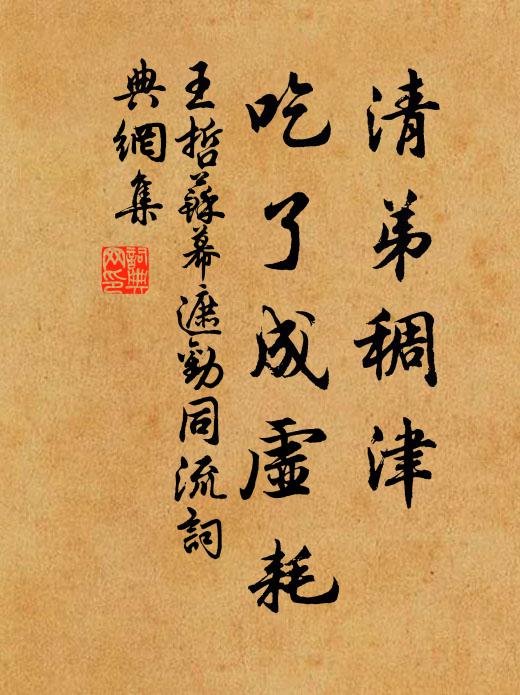 清弟稠津
吃了成虛耗
王哲蘇幕遮勸同流詞
典網集
詞典
网印